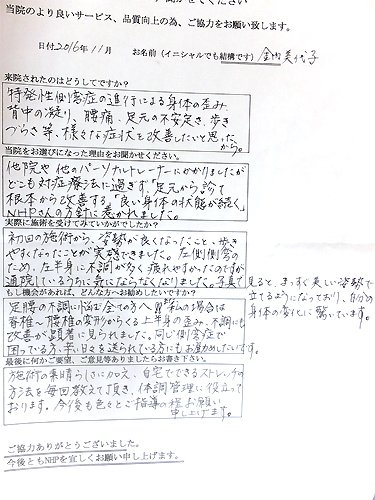 かせください
当院のより良いサービス、品質向上の為、ご協力をお願い致します。
日付 2016年11月 お名前（イニシャルでも結構です）金内美代子
来院されたのはどうしてですか？
特発性側弯症の進行による身体の歪み、
背中の凝り、腰痛、足元の不安定さ、歩き
づらさ等、様々な症状を改善したいと思った
から。
当院をお選びになった理由をお聞かせください。
他院や他のパーソナルトレーナーにかかりましたが
どこも対症療法に過ぎず「足元から診て
根本から改善する」「良い身体の状態が続く」
NHPさんの方針に惹かれました。
実際に施術を受けてみていかがでしたか？
初回の施術から、姿勢が良くなったこと、歩き
やすくなったことが実感できました。左側側弯の
ため、左半身に不調が多く疲れやすかったのですが
通院しているうちに気にならなくなりました。写真で見ると、まっすぐ美しい姿勢で
立てるようになっており、自分の
身体の変化に驚いています。
もし機会があれば、どんな方へお勧めしたいですか？
足腰の不調に悩む全ての方へ。私の場合は
脊椎〜腰椎の変形からくる上半身の歪み、不調にも
改善が顕著に見られました。同じ側弯症で
困っている方、辛い日々を送られている方にもお勧めしたいです。
最後に何かご要望、ご意見等ありましたらお書き下さい。
施術の素晴らしさに加え、自宅でできるストレッチの
方法を毎回教えて頂き、体調管理に役立って
おります。今後も色々とご指導の程お願い
申し上げます。
ご協力ありがとうございました。
今後ともNHPを宜しくお願い申し上げます。